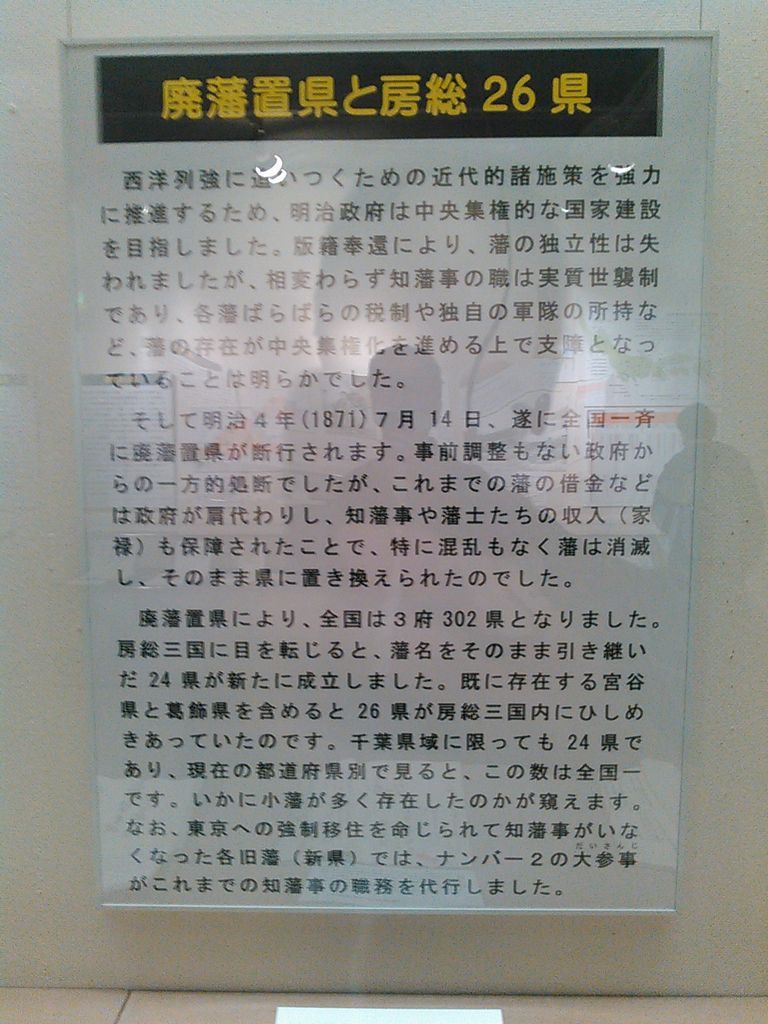 廃藩置県と房総 26 県
西洋列強に追いつくための近代的諸施策を強力
に推進するため、明治政府は中央集権的な国家建設
を目指しました。版籍奉還により、藩の独立性は失
われましたが、相変わらず知藩事の職は実質世襲制
であり、各藩ばらばらの税制や独自の軍隊の所持な
ど、藩の存在が中央集権化を進める上で支障となっ
ていることは明らかでした。
そして明治４年(1871)７月 14 日、遂に全国一斉
に廃藩置県が断行されます。事前調整もない政府か
らの一方的処断でしたが、これまでの藩の借金など
は政府が肩代わりし、知藩事や藩士たちの収入（家
禄）も保障されたことで、特に混乱もなく藩は消滅
し、そのまま県に置き換えられたのでした。
廃藩置県により、全国は３府 302 県となりました。
房総三国に目を転じると、藩名をそのまま引き継い
だ 24 県が新たに成立しました。既に存在する宮谷
県と葛飾県を含めると 26 県が房総三国内にひしめ
きあっていたのです。千葉県域に限っても 24 県で
あり、現在の都道府県別で見ると、この数は全国一
です。いかに小藩が多く存在したのかが窺えます。
なお、東京への強制移住を命じられて知藩事がいな
だいさんじ
くなった各旧藩（新県）では、ナンバー２の大参事
がこれまでの知藩事の職務を代行しました。